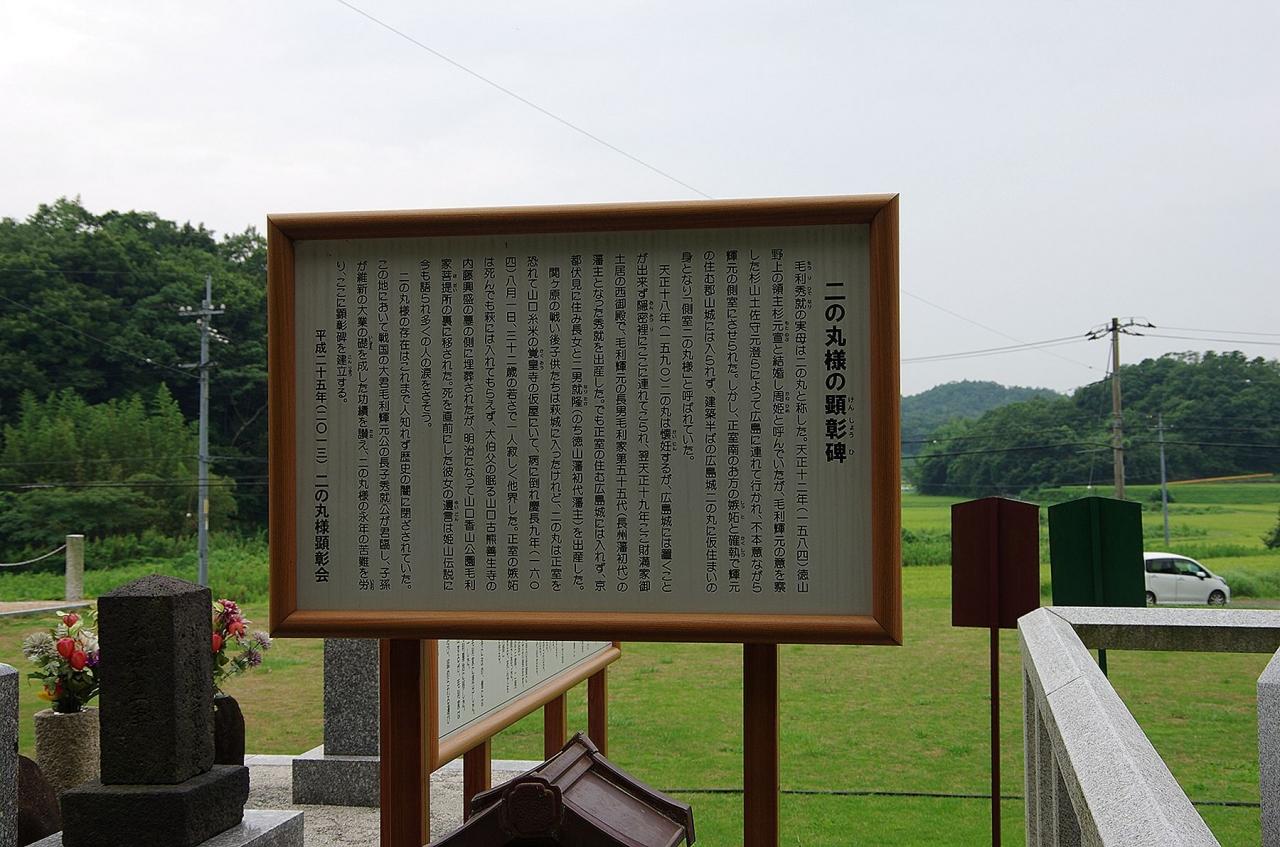 二の丸様の顕彰碑
毛利秀就の実母は二の丸と称した。天正十二年(一五八四)徳山
野上の領主杉元宣と結婚し周姫と呼んでいたが、毛利輝元の意を察
した杉山土佐守元澄らによって広島に連れて行かれ、不本意ながら
輝元の側室にさせられた。しかし、正室南のお方の嫉妬と確執で輝元
の住む郡山城には入られず、建築半ばの広島城二の丸に仮住まいの
身となり「側室二の丸様」と呼ばれていた。
天正十八年(一五九〇)二の丸は懐妊するが、広島城には置くこと
が出来ず隠密裡にここに連れてこられ、翌天正十九年ここ財満家御
土居の西御殿で、毛利輝元の長男毛利家第五十五代(長州藩初代)の
藩主となった秀就を出産した。でも正室の住む広島城には入れず、京
都伏見に住み長女と二男就隆(のち徳山藩初代藩主)を出産した。
関ヶ原の戦い後子供たちは萩城に入ったけれど、二の丸は正室を
恐れて山口糸米の覚皇寺の仮屋にいて、病に倒れ慶長九年(一六〇
四)八月一日、三十二歳の若さで一人寂しく他界した。正室の嫉妬
は死んでも萩には入れてもらえず、大伯父の眠る山口古熊善生寺の
内藤興盛の墓の側に埋葬されたが、明治になって山口香山公園毛利
家菩提所の裏に移された。死を直前にした彼女の遺言は姫山伝説に
今も語られ多くの人の涙をさそう。
二の丸様の存在はこれまで人知れず歴史の闇に閉ざされていた。
この地において戦国の大君毛利輝元公の長子秀就公が君臨し、子孫
が維新の大業の礎を成した功績を讃え、二の丸様の永年の苦難を労
り、ここに顕彰碑を建立する。
平成二十五年(二〇一三) 二の丸様顕彰会